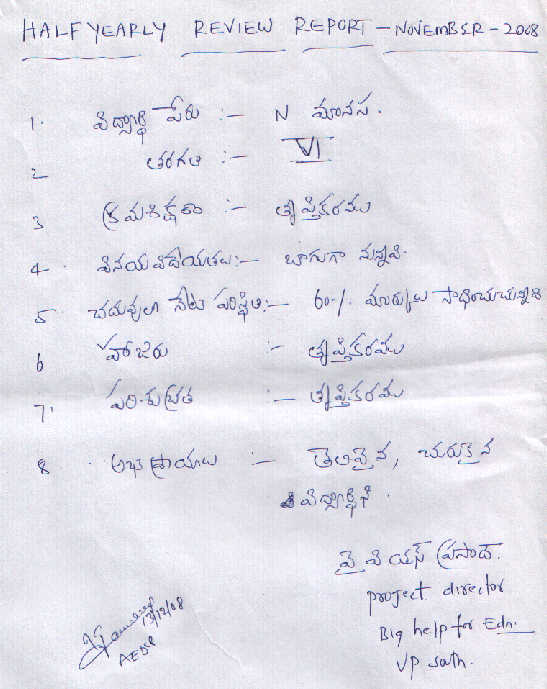 HALF YEARLY REVIEW REPORT - NOVEMBER - 2008
1. విద్యార్థి పేరు :- N మానస.
2 తరగతి :- VI
3 క్రమశిక్షణ :- తృప్తికరము
4- వినయవిధేయతలు:- బాగుగా నున్నవి.
5 చదువులో నేటి పరిస్థితి:- 60-/. మార్కులు సాధించుచున్నది
6 హాజరు :- తృప్తికరము
7. పరిశుభ్రత :- తృప్తికరము
8 అభిప్రాయాలు :- తెలివైన, చురుకైన
విద్యార్థిని.
వై.వి యస్ ప్రసాద్.
project director
Big help for Edn.
13/12/08